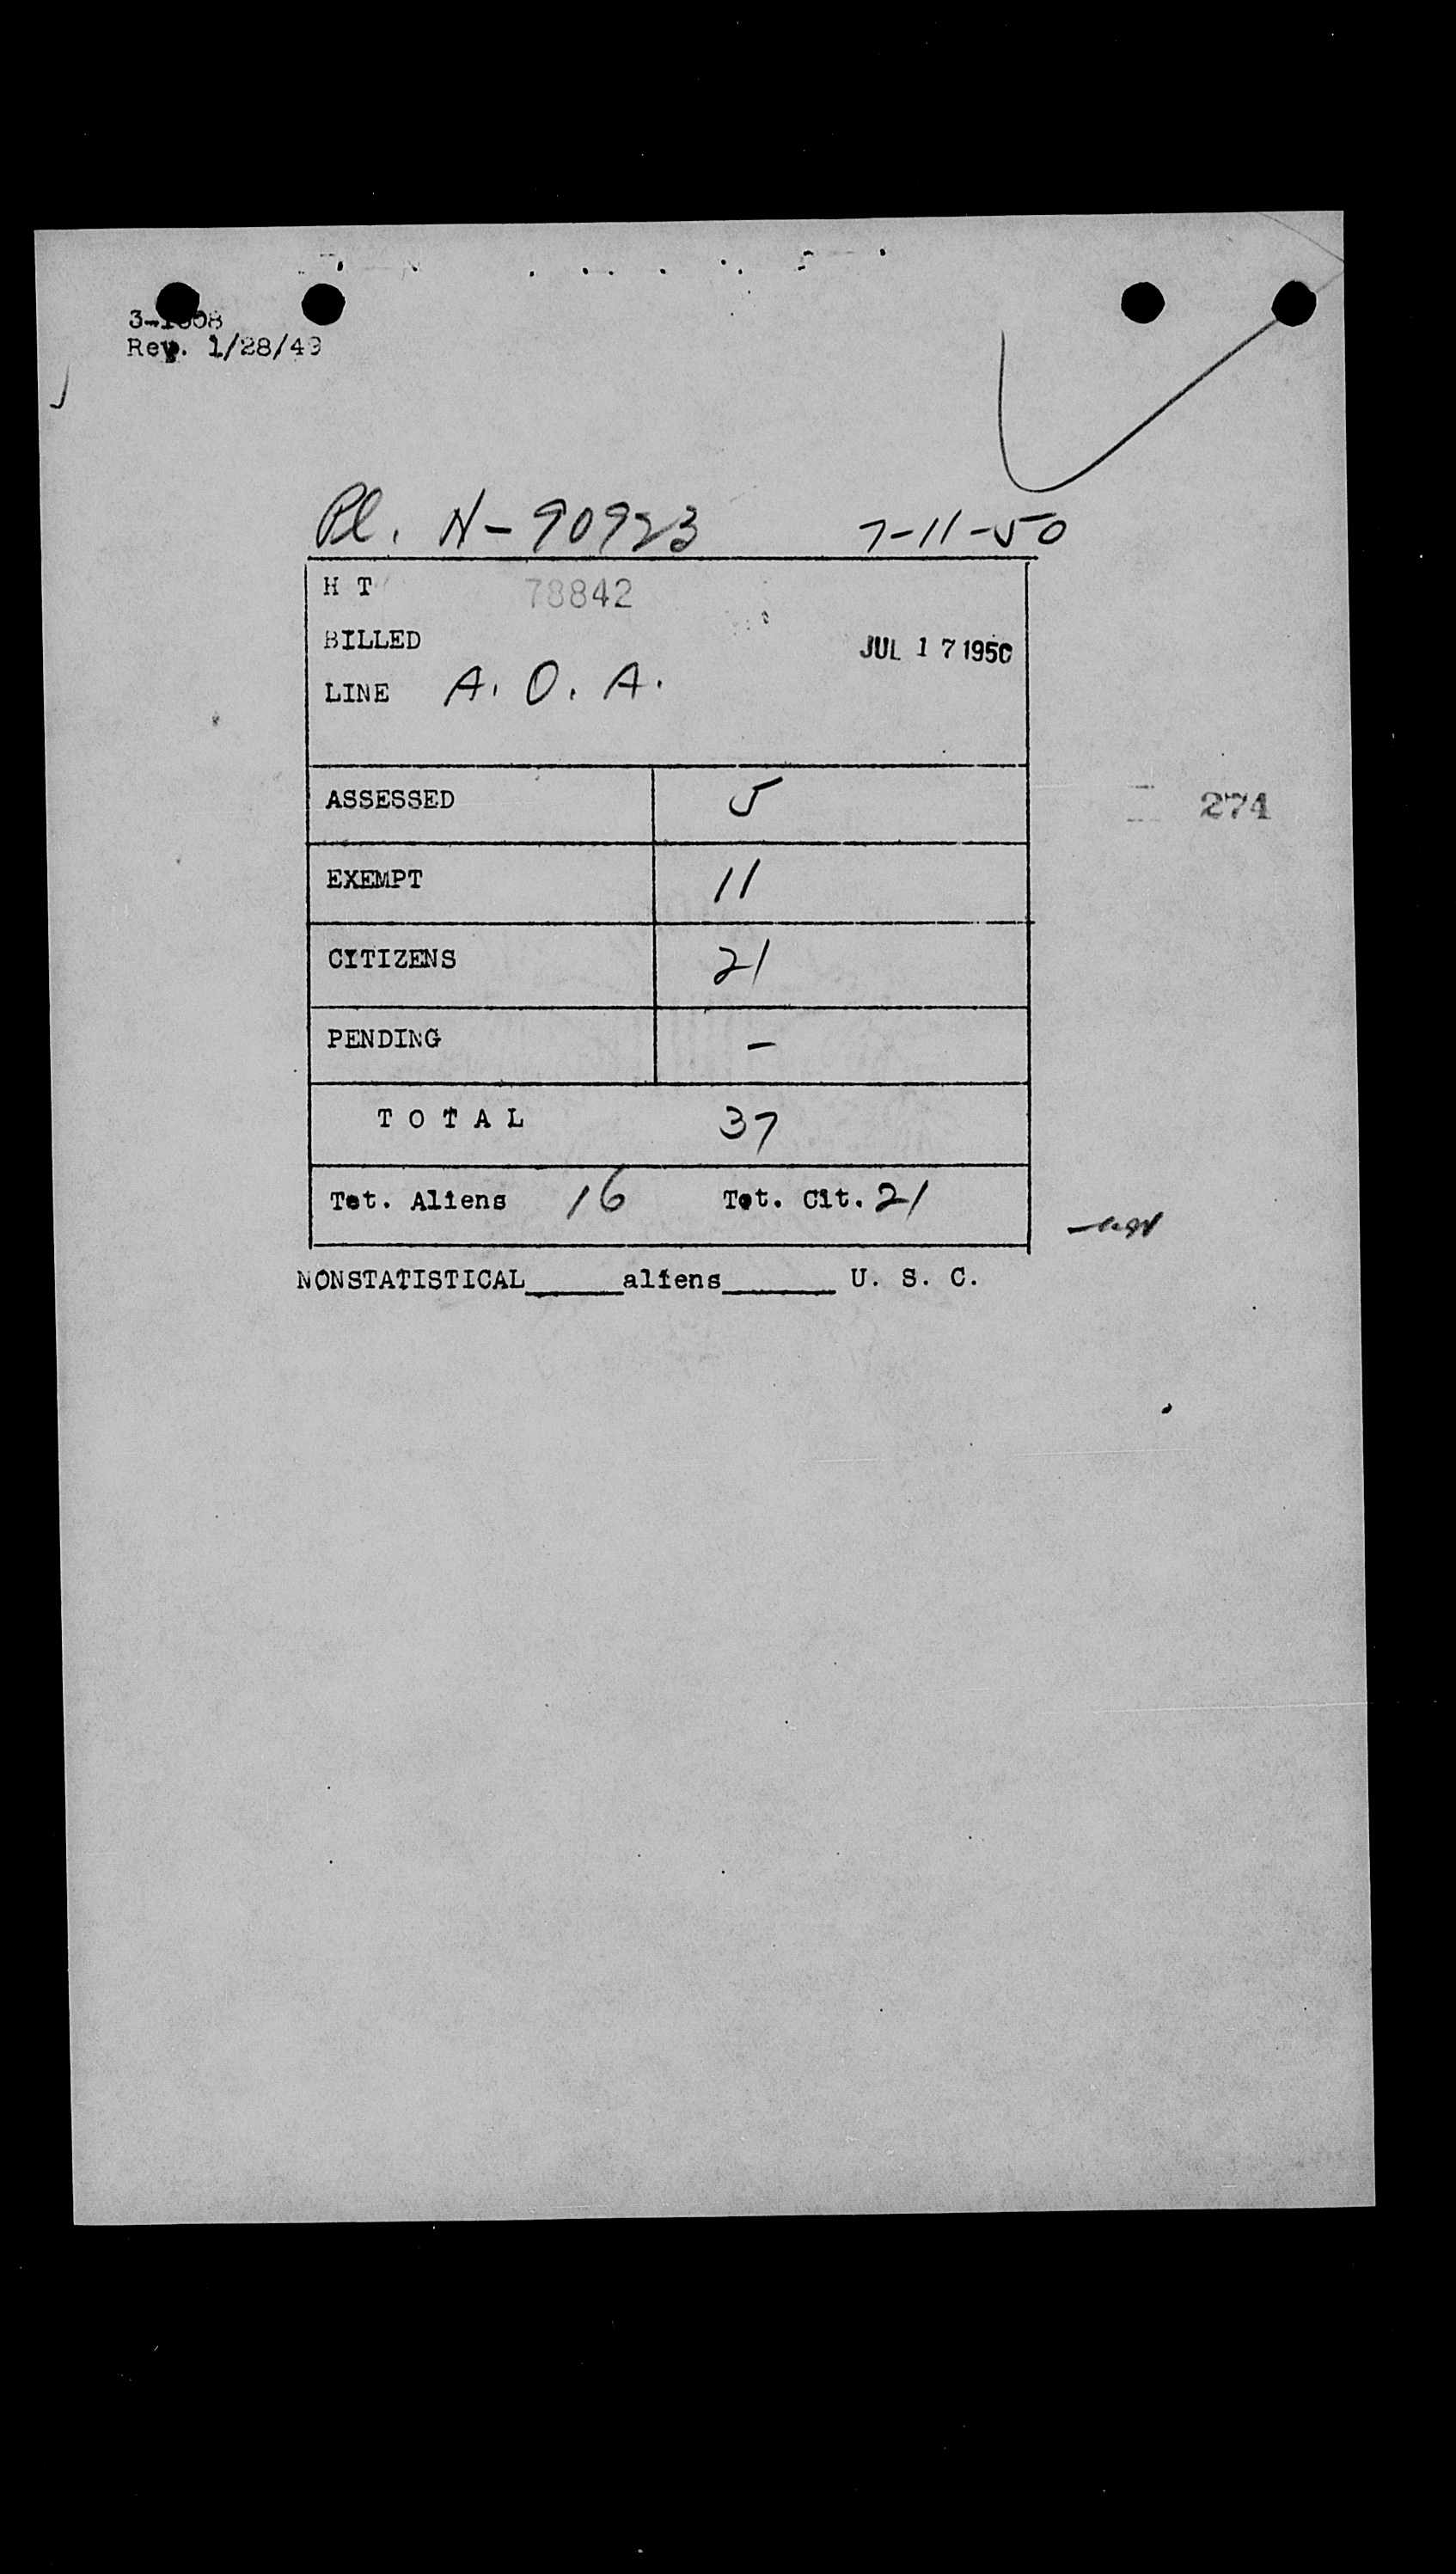 Rev. 1/28/49
Pl. N-90923 7-11-50
H T 78842
BILLED JUL 17 1950
LINE A. O. A.
ASSESSED 5
274
EXEMPT 11
CITIZENS 21
PENDING -
T O T A L 37
Tot. Aliens 16 Tot. Cit. 21
NONSTATISTICAL_____aliens______ U. S. C.